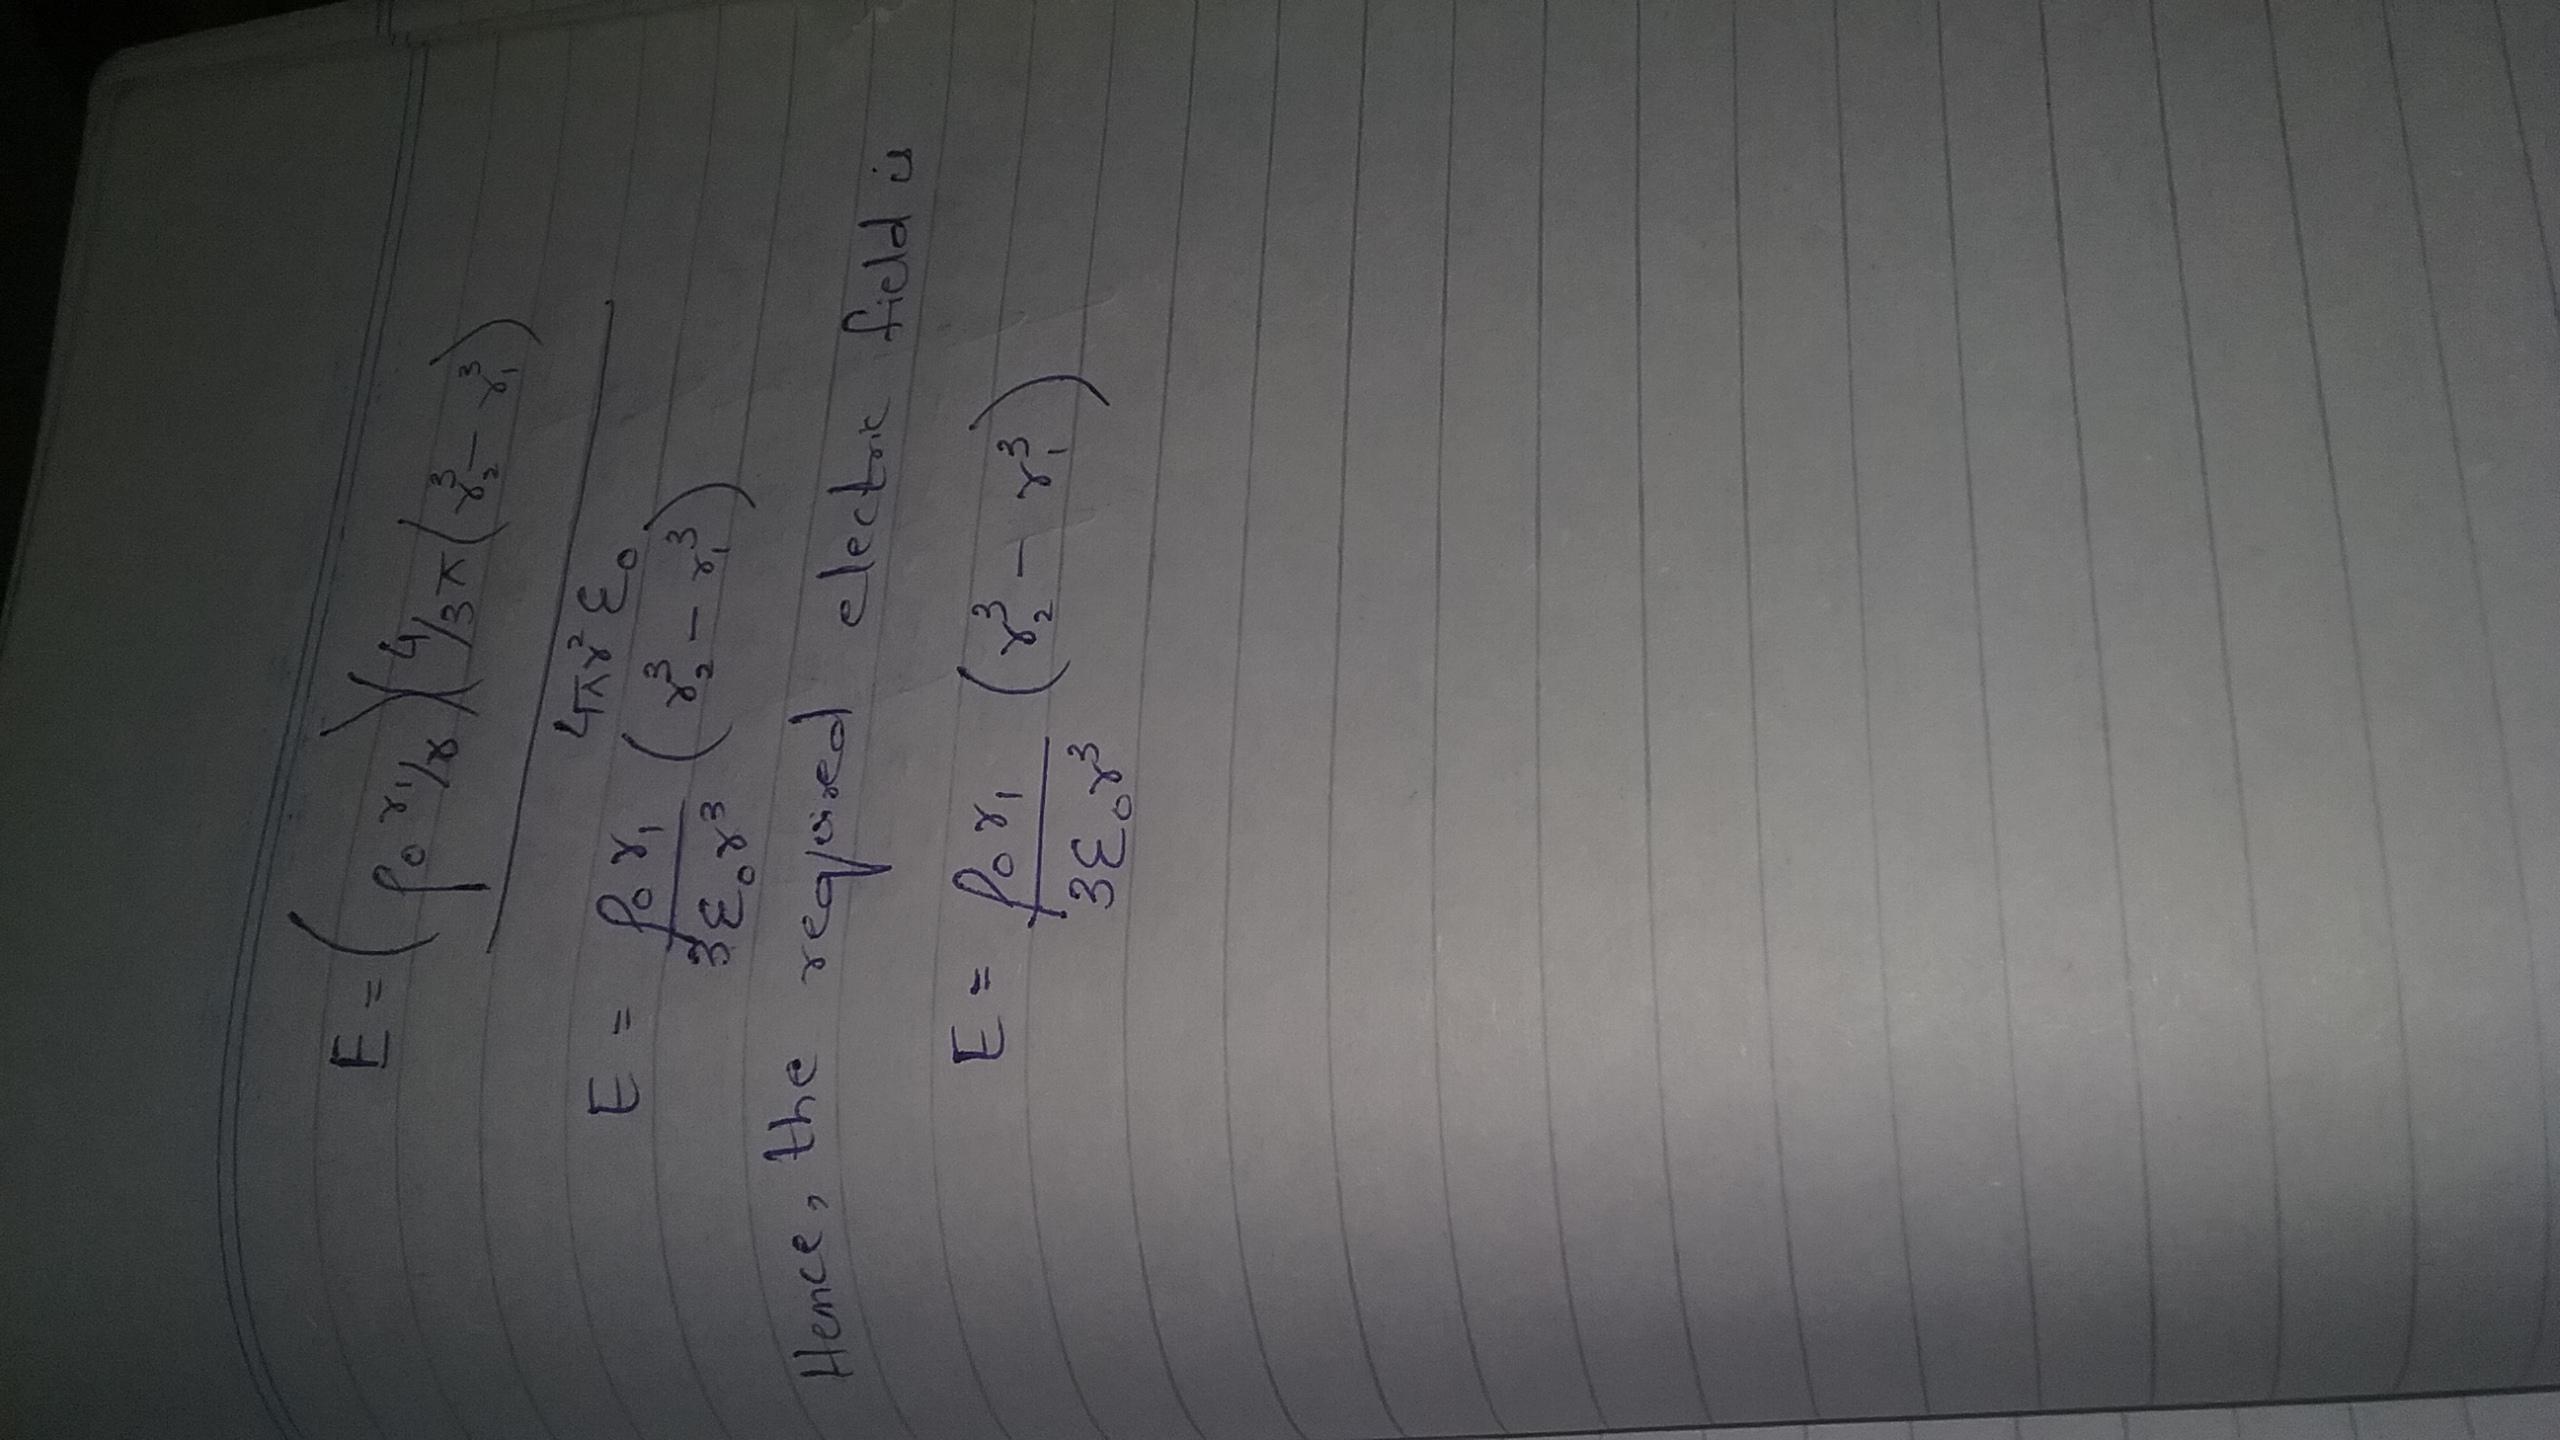 E = (ρ₀ r₁/r)(4/3 π(r₂³ - r₁³)
4πr² ε₀
E = ρ₀ r₁ / 3ε₀r³ (r₂³ - r₁³)
Hence, the required electric field is
E = ρ₀ r₁ / 3ε₀r³ (r₂³ - r₁³)